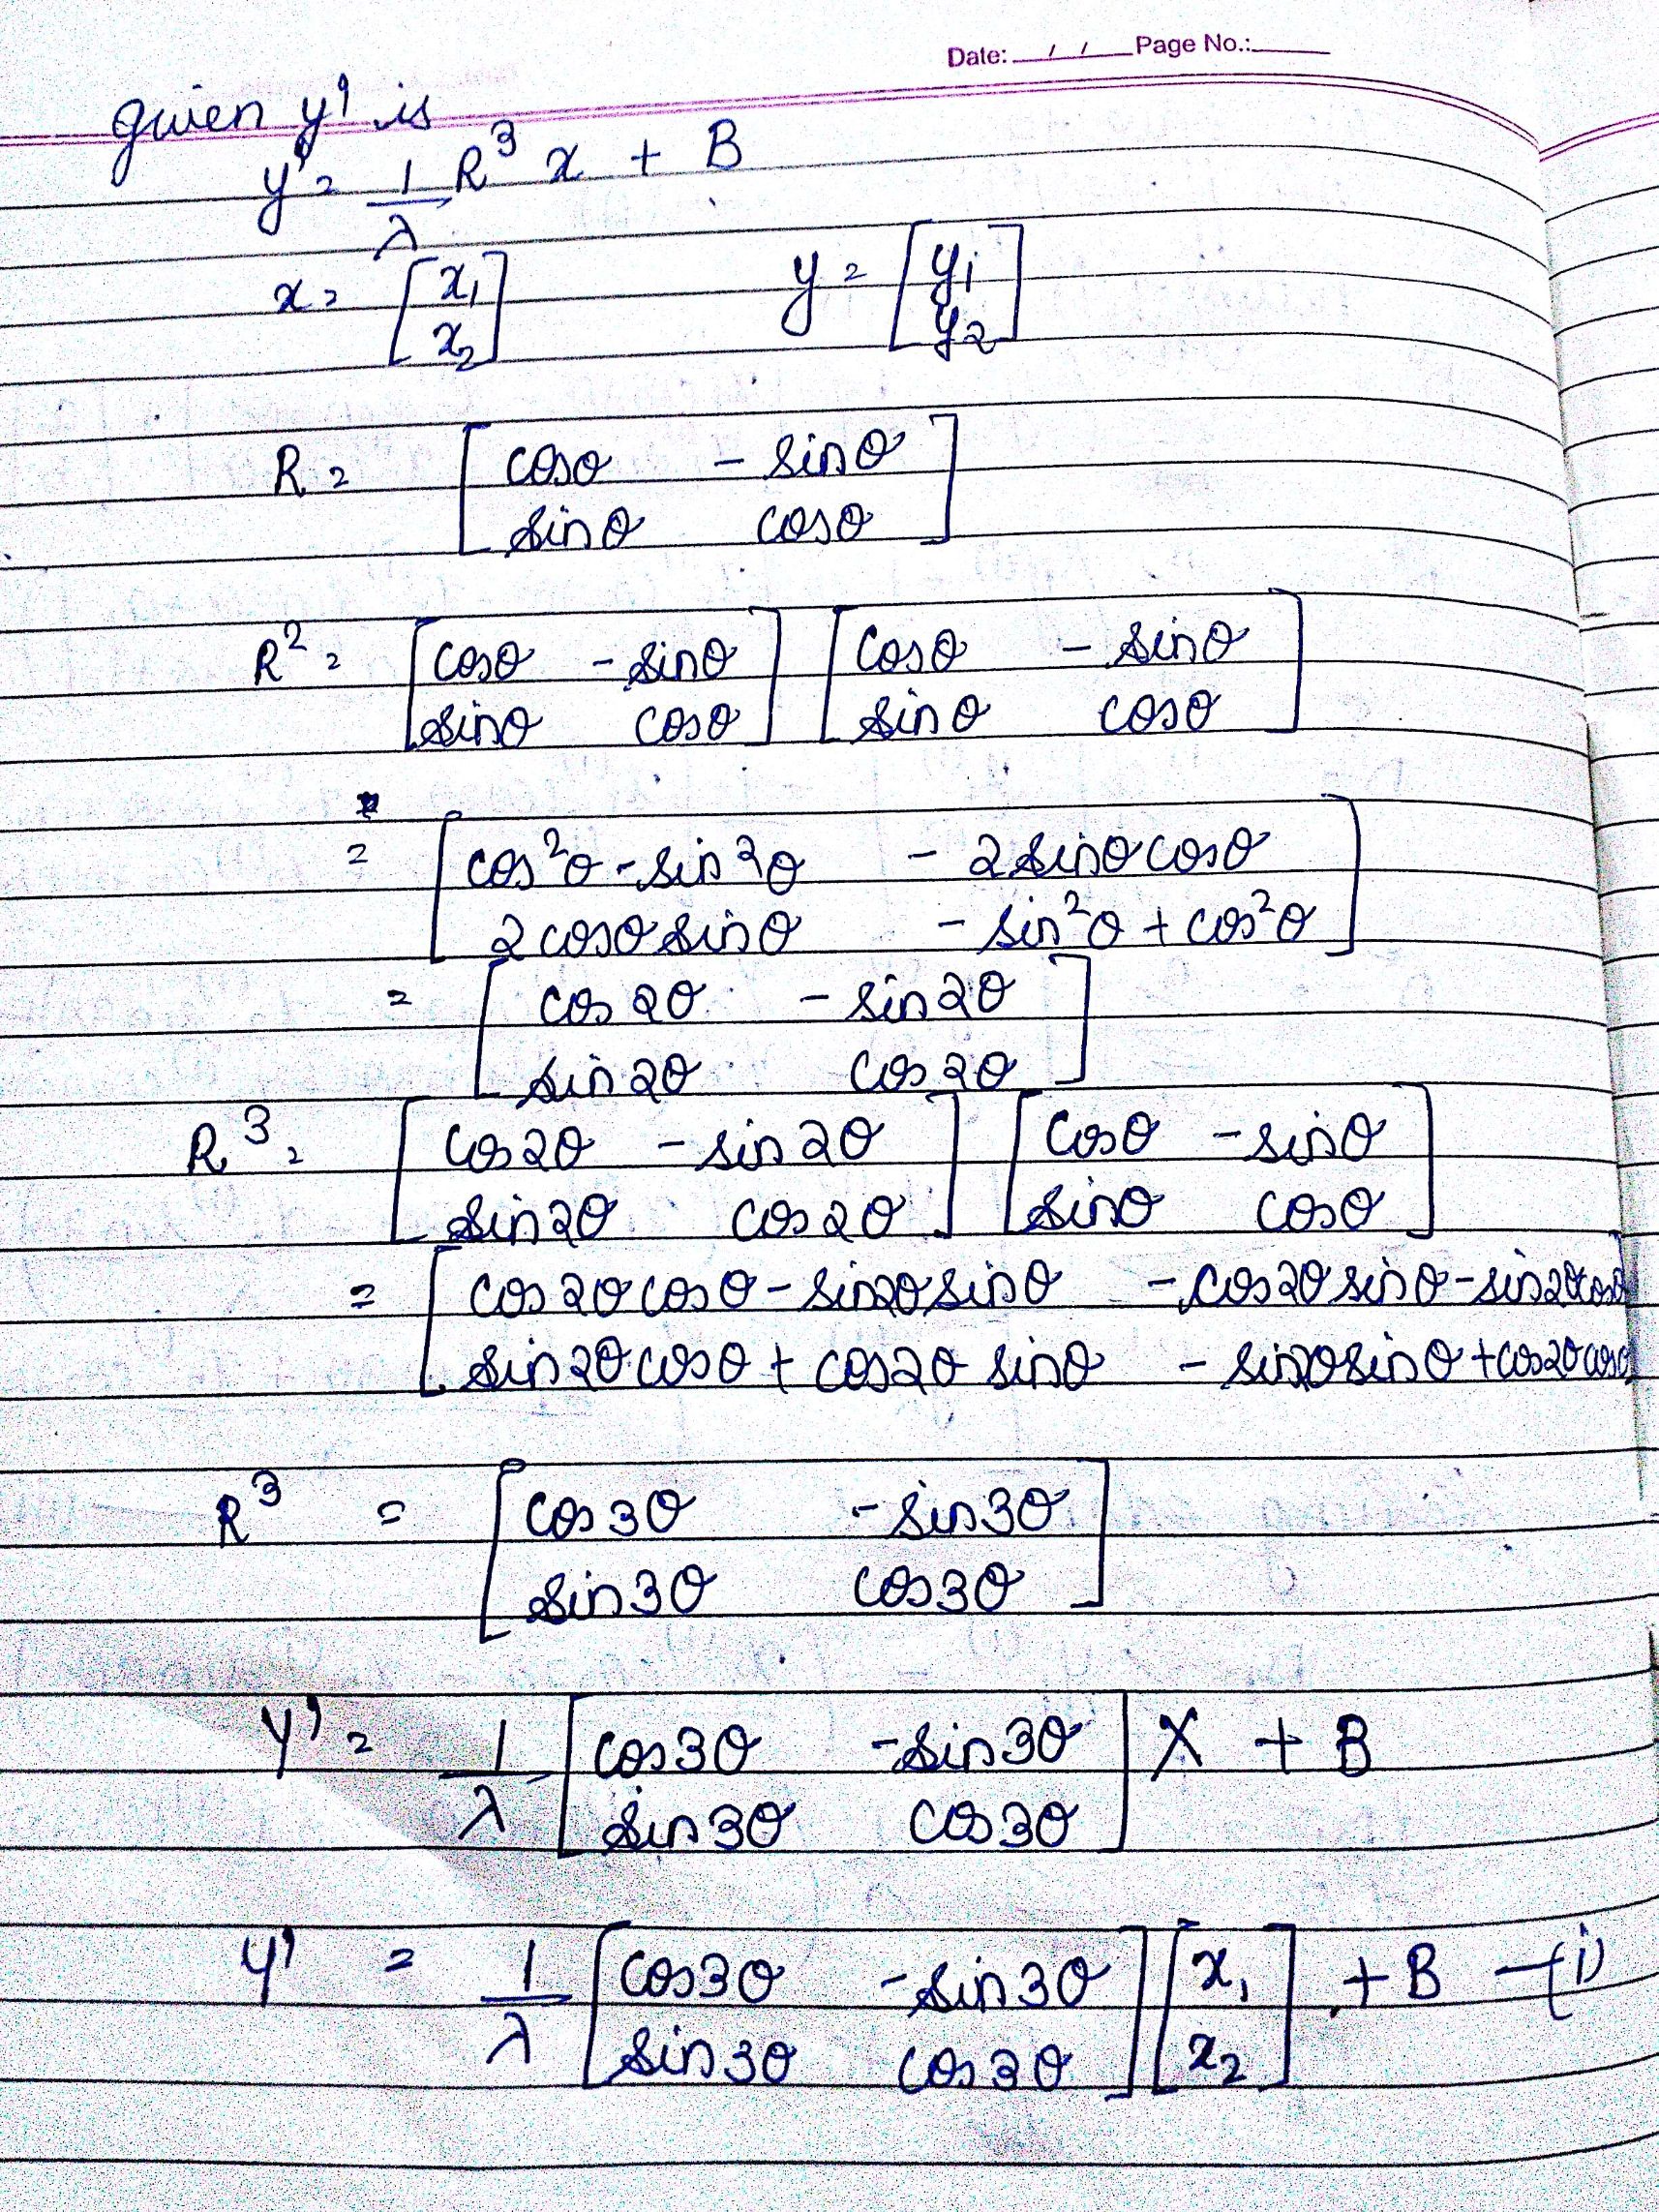 Date: / / Page No.:
given y' is
y' = 1/λ R³ x + B
x = [x₁ x₂] y = [y₁ y₂]
R = [cosθ - sinθ
sinθ cosθ]
R² = [cosθ - sinθ] [cosθ - sinθ]
[sinθ cosθ] [sinθ cosθ]
= [cos²θ - sin²θ - 2sinθcosθ
2cosθsinθ - sin²θ + cos²θ]
= [cos2θ - sin2θ
sin2θ cos2θ]
R³ = [cos2θ - sin2θ] [cosθ - sinθ]
[sin2θ cos2θ] [sinθ cosθ]
= [cos2θcosθ - sin2θsinθ - cos2θsinθ - sin2θcosθ
sin2θcosθ + cos2θsinθ - sin2θsinθ + cos2θcosθ]
R³ = [cos3θ - sin3θ
sin3θ cos3θ]
Y' = 1/λ [cos3θ - sin3θ] X + B
[sin3θ cos3θ]
Y' = 1/λ [cos3θ - sin3θ] [x₁] + B — (i)
[sin3θ cos3θ] [x₂]